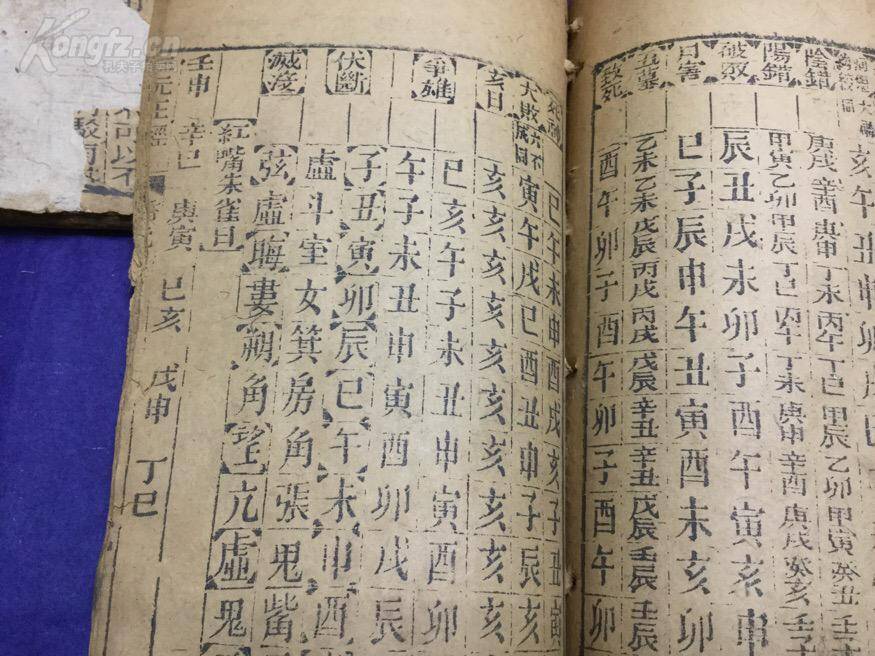 亥午丑申卯
陰錯 庚戌 辛酉 庚申 丁未 丙午 丁巳 甲辰 乙卯 甲寅 癸丑 壬子
陽錯 甲寅 乙卯 甲辰 丁巳 丙午 丁未 庚申 辛酉 庚戌 癸亥
破敗 辰丑戌未卯子酉午寅亥申
月害 巳子辰申午丑寅酉未亥卯
五墓 乙未 乙未 戊辰 丙戌 丙戌 戊辰 辛丑 辛丑 戊辰 壬辰 壬辰
致死 酉午卯子酉午卯子酉午卯
巳午未申酉戌亥子丑寅
大敗六不成同 寅午戌巳酉丑申子辰亥
亥日 亥亥亥亥亥亥亥亥亥亥
爭雄 巳亥午子未丑申寅酉卯
午子未丑申寅酉卯戌辰
伏斷 子丑寅卯辰巳午未申酉
虛斗室女箕房角張鬼觜
滅没 弦虛晦婁朔角望亢虛鬼
紅嘴朱雀日
壬申 辛巳 庚寅 己亥 戊申 丁巳
Kongfz.cn
孔夫子